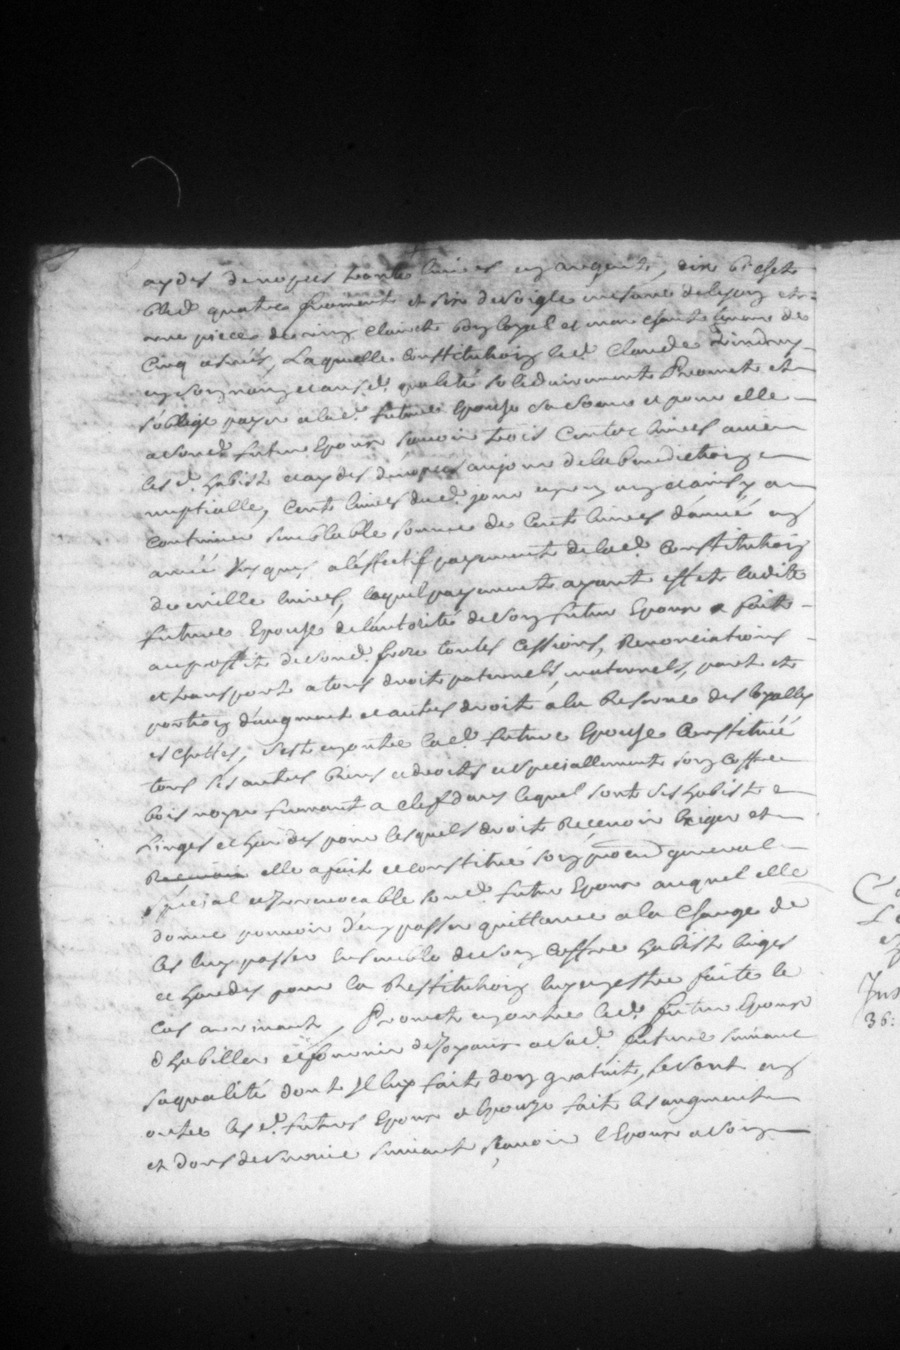 aydes denopces trante livres en argent, dix bichet
bled quatre froment et six de soigle mesure de
une piece de vin clairet bon loyal et marchant
cinq asnées, Laquelle constitution led. Claude
en son nom et ausd. qualité solidairement Promet et
s'oblige payer a lad. future Epouse sa soeur et pour elle
a sond. futur Epoux savoir trois Cents livres avec
lesd. habist et aydes denopces au jour de la benediction
nuptialle, Cent livres dud. jour en un an et ainsy a
continuer semblable somme de Cent livres d'année en
année jusques a l'effectif payement de lad. constitution
de mille livres, lequel payement ayant effet ladite
future Epouse de l'autorité de son futur Epoux a fait
au proffit de sond. frere toutes Cessions, Renonciations
et transports a tous droits paternels, maternels, part et
portion d'augment et autres droit a la Reserve des loyalles
eschettes, s'est en outre lad. future Epouse Constituée
tous ses autres biens et droits et speciallement son coffre
bois noyer fermant a clef dans lequel sont ses habist
Linges et hardes pour lesquels droit Recevoir Exiger et
elle a fait et constitué son procur general
special et Irrevocable sond. futur Epoux auquel elle
donne pouvoir d'en passer quittance a la Charge de
les luy passer Ensemble de son coffre habist linges
et hardes pour la Restitution luy en estre faite le
cas arrivant, Promet en outre led. futur Epoux
d'habiller et fournir de Joyaux a sad. future suivant
sa qualité dont Il luy fait don gratuit, se sont en
outre lesd. futurs Epoux et Epouse fait les augment
et dons de survie suivant sçavoir l'Epoux a son
36: